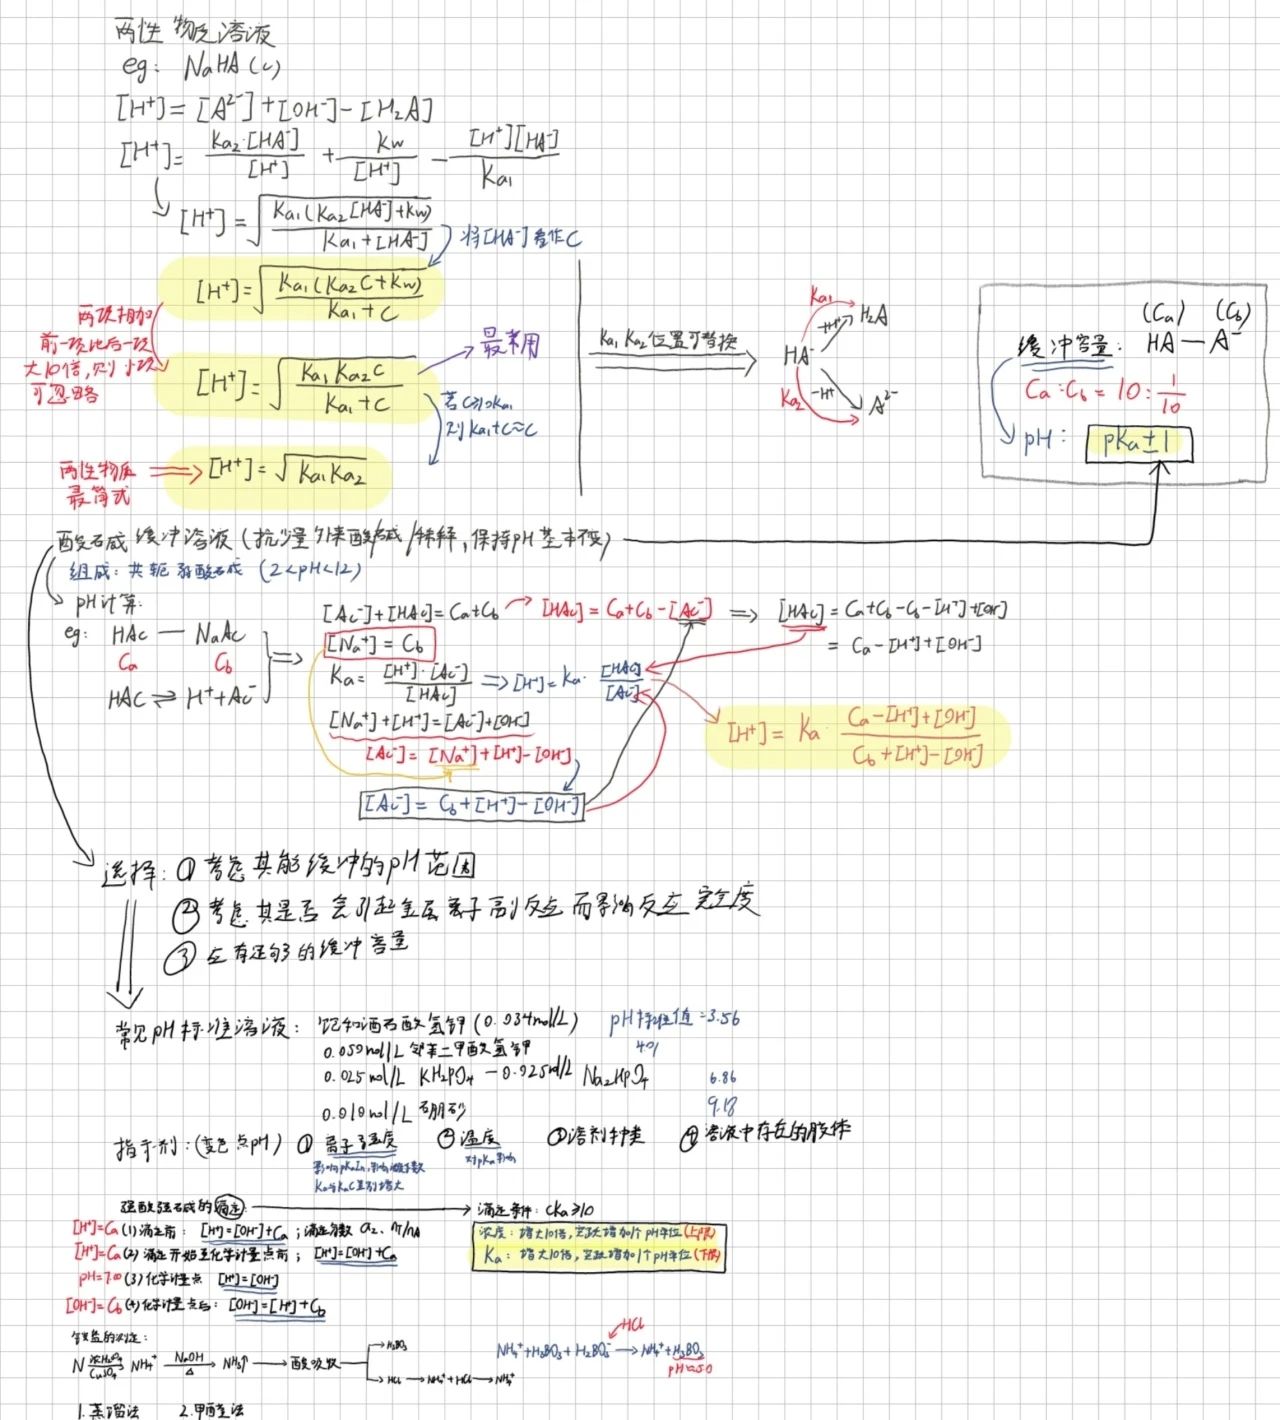 两性物质溶液
eg: NaHA (c)
[H⁺] = [A²⁻] + [OH⁻] - [H₂A]
[H⁺] = Ka₂·[HA⁻]/[H⁺] + Kw/[H⁺] - [H⁺][HA⁻]/Ka₁
[H⁺] = √(Ka₁(Ka₂[HA⁻]+Kw)/(Ka₁+[HA⁻]))
将[HA⁻]看作C
[H⁺] = √(Ka₁(Ka₂C+Kw)/(Ka₁+C))
两项相加
前一项比后一项
大10倍,则小项
可忽略
[H⁺] = √(Ka₁Ka₂C/(Ka₁+C))
最常用
若C>10Ka₁
则Ka₁+C≈C
两性物质
最简式
[H⁺] = √(Ka₁Ka₂)
Ka₁ Ka₂ 位置可替换
Ka₁
+H⁺
H₂A
HA⁻
-H⁺
Ka₂
A²⁻
(Ca) (Cb)
缓冲容量: HA — A⁻
Ca:Cb = 10:1/10
pH: pKa±1
酸碱缓冲溶液(抗少量外来酸/碱/稀释,保持pH基本不变)
组成:共轭弱酸碱 (2<pH<12)
pH计算:
eg: HAc — NaAc
Ca Cb
HAc ⇌ H⁺+Ac⁻
[Ac⁻]+[HAc]=Ca+Cb
[HAc] = Ca+Cb-[Ac⁻]
[HAc] = Ca+Cb-Cb-[H⁺]+[OH⁻]
= Ca-[H⁺]+[OH⁻]
[Na⁺] = Cb
Ka = [H⁺]·[Ac⁻]/[HAc] ⇒ [H⁺]=Ka·[HAc]/[Ac⁻]
[Na⁺]+[H⁺]=[Ac⁻]+[OH⁻]
[Ac⁻] = [Na⁺]+[H⁺]-[OH⁻]
[H⁺] = Ka·(Ca-[H⁺]+[OH⁻])/(Cb+[H⁺]-[OH⁻])
[Ac⁻] = Cb+[H⁺]-[OH⁻]
选择:① 考虑其能缓冲的pH范围
② 考虑其是否会引起金属离子副反应而影响反应完全度
③ 应有足够的缓冲容量
常见pH标准溶液: 饱和酒石酸氢钾(0.034mol/L) pH标准值=3.56
0.050mol/L 邻苯二甲酸氢钾 4.01
0.025mol/L KH₂PO₄ — 0.025mol/L Na₂HPO₄ 6.86
0.010mol/L 硼砂 9.18
指示剂:(变色点pH) ① 离子强度 ② 温度 ③ 溶剂种类 ④ 溶液中存在的胶体
对pKa影响
强酸强碱的滴定 滴定条件: cKa≥10
[H⁺]=Ca (1) 滴定前: [H⁺]=[OH⁻]+Ca;滴定分数
[H⁺]=Ca (2) 滴定开始至化学计量点前; [H⁺]=[OH⁻]+Ca
pH=7.00 (3) 化学计量点 [H⁺]=[OH⁻]
[OH⁻]=Cb (4) 化学计量点后: [OH⁻]=[H⁺]+Cb
浓度:增大10倍,突跃增加1个pH单位(上限)
Ka:增大10倍,突跃增加1个pH单位(下限)
铵盐的测定:
N 浓H₂SO₄ CuSO₄ NH₄⁺ NaOH △ NH₃↑ → 酸吸收
H₃BO₃
HCl → NH₄⁺+HCl → NH₄⁺
HCl
NH₄⁺+H₃BO₃+H₂BO₃⁻ → NH₄⁺+H₃BO₃
pH≈5.0
1.蒸馏法 2.甲醛法